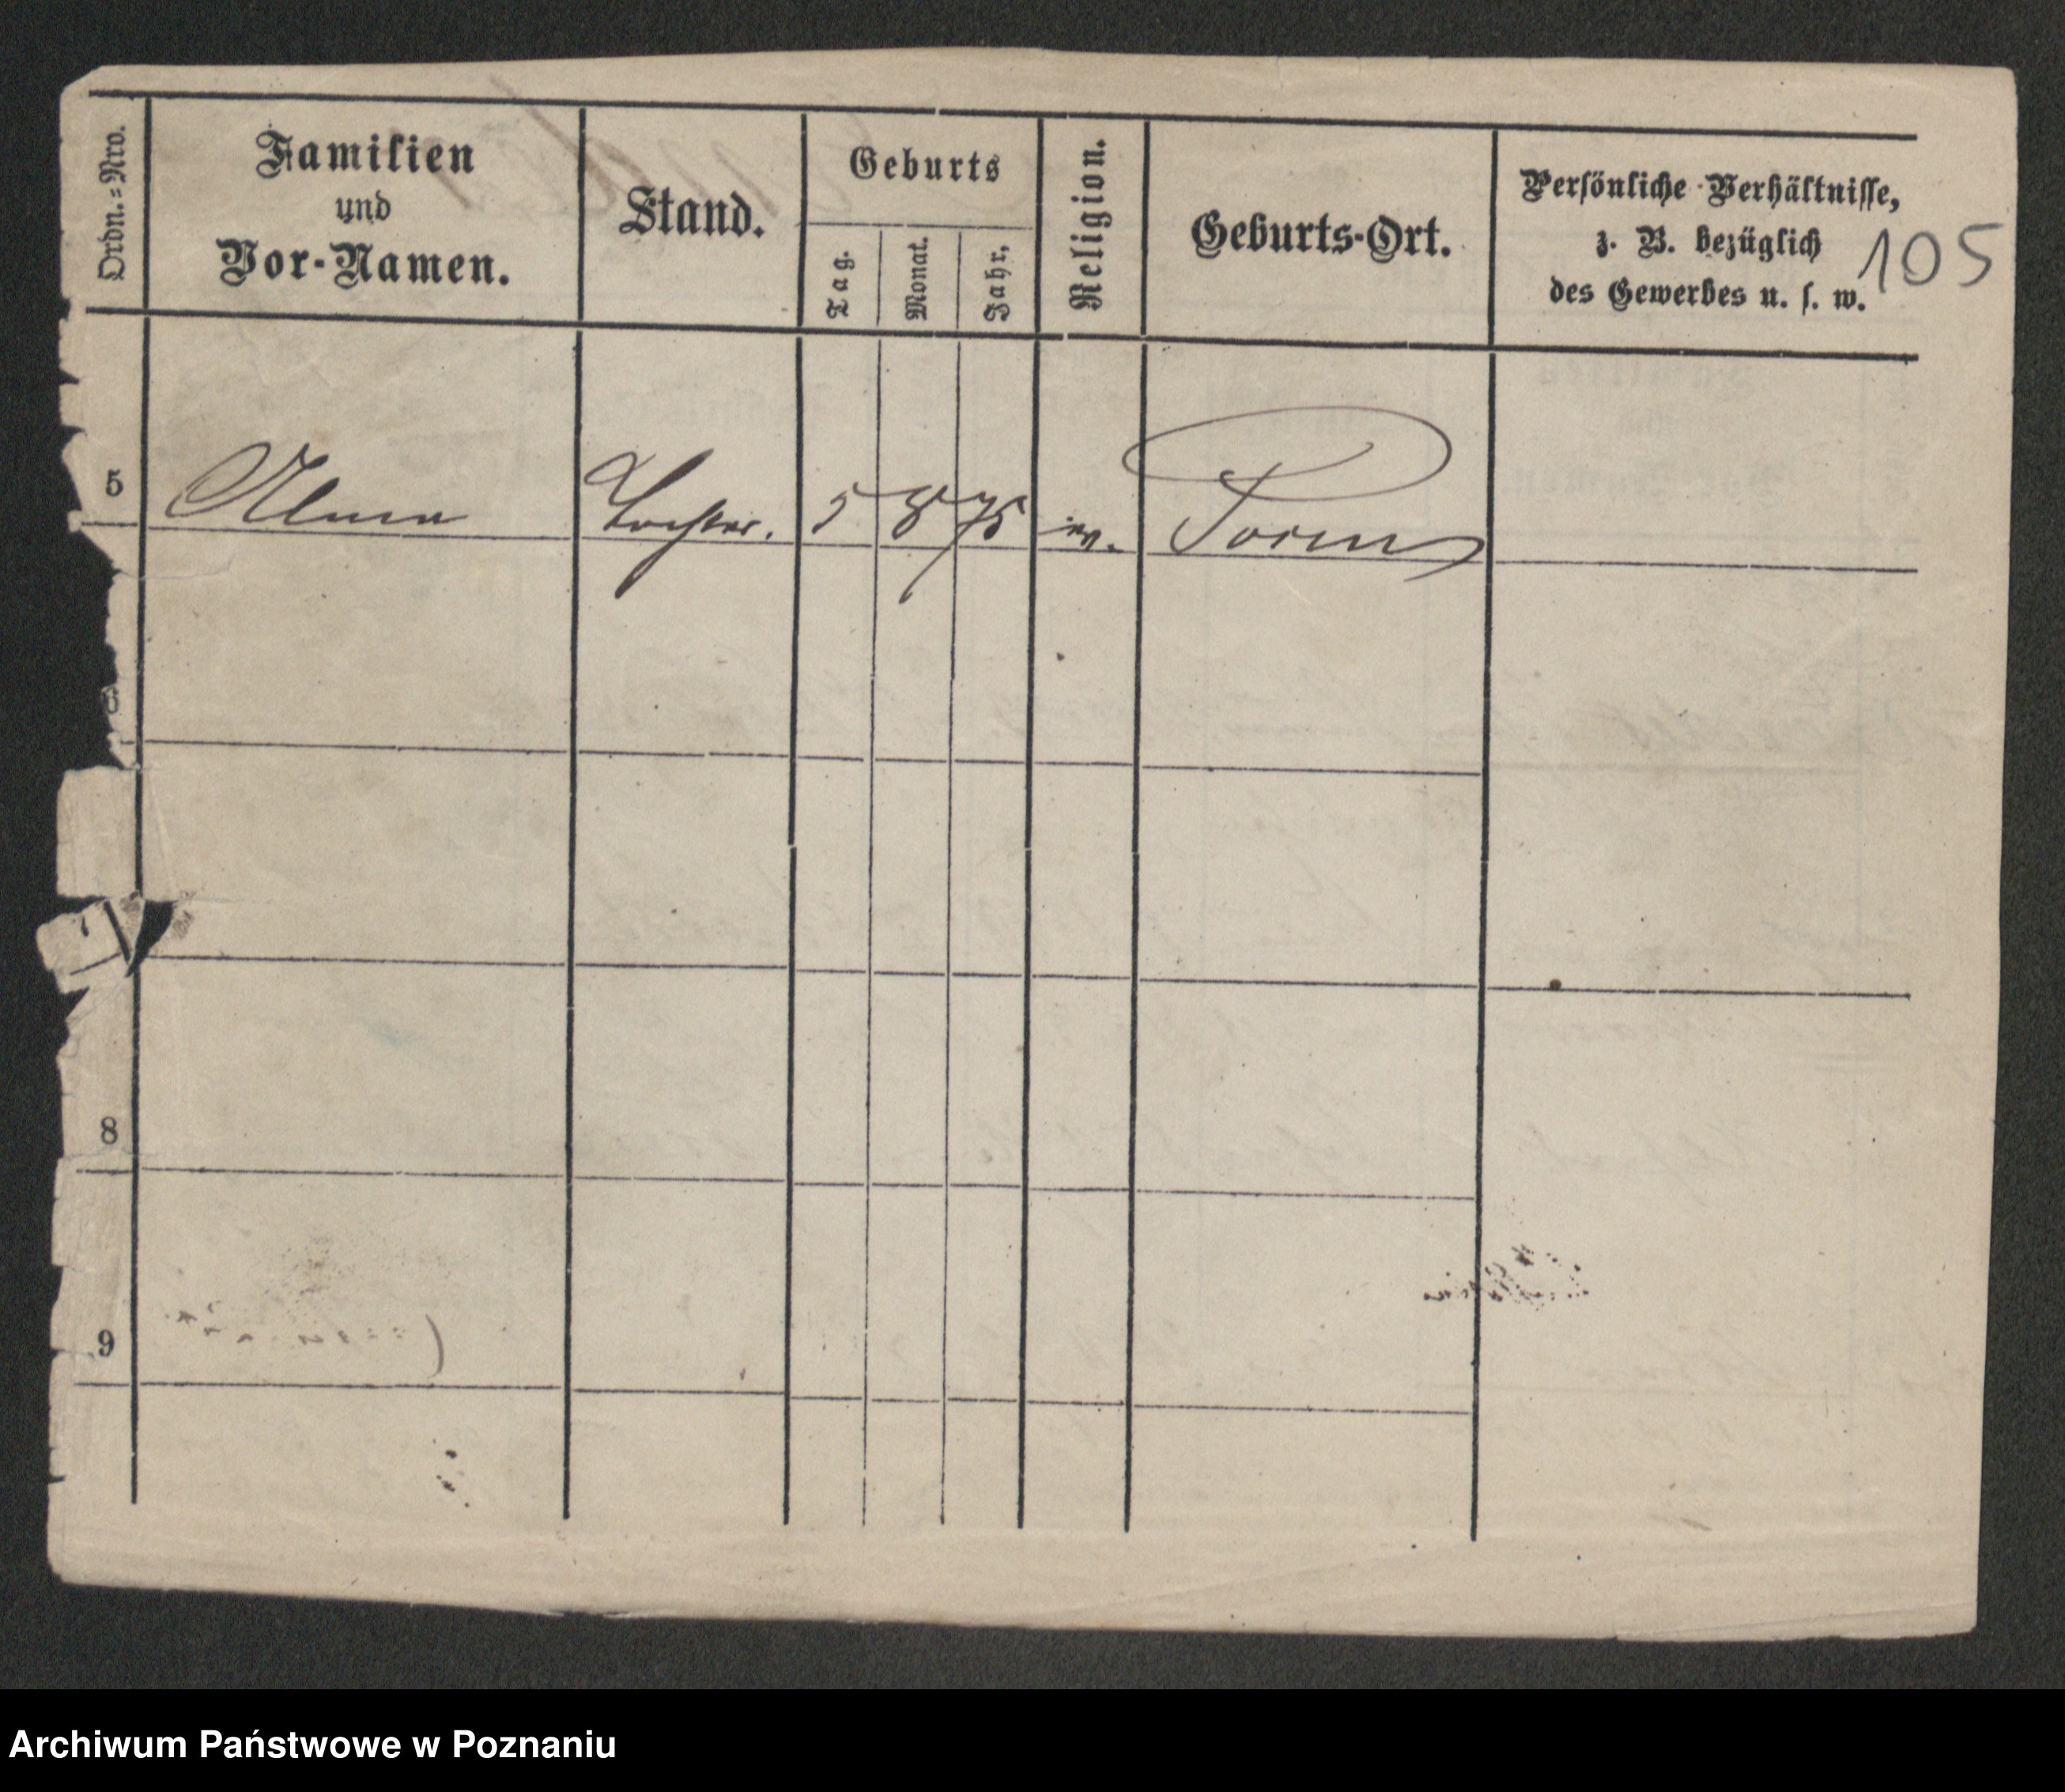 Ordn.=Nro.
Familien
und
Vor-Namen.
Stand.
Geburts
Tag.
Monat.
Jahr.
Religion.
Geburts-Ort.
Persönliche Verhältnisse,
z. B. bezüglich
des Gewerbes u. s. w.
105
5 Alma Tochter. 5 8 75 Posen
6
7
8
9
Archiwum Państwowe w Poznaniu